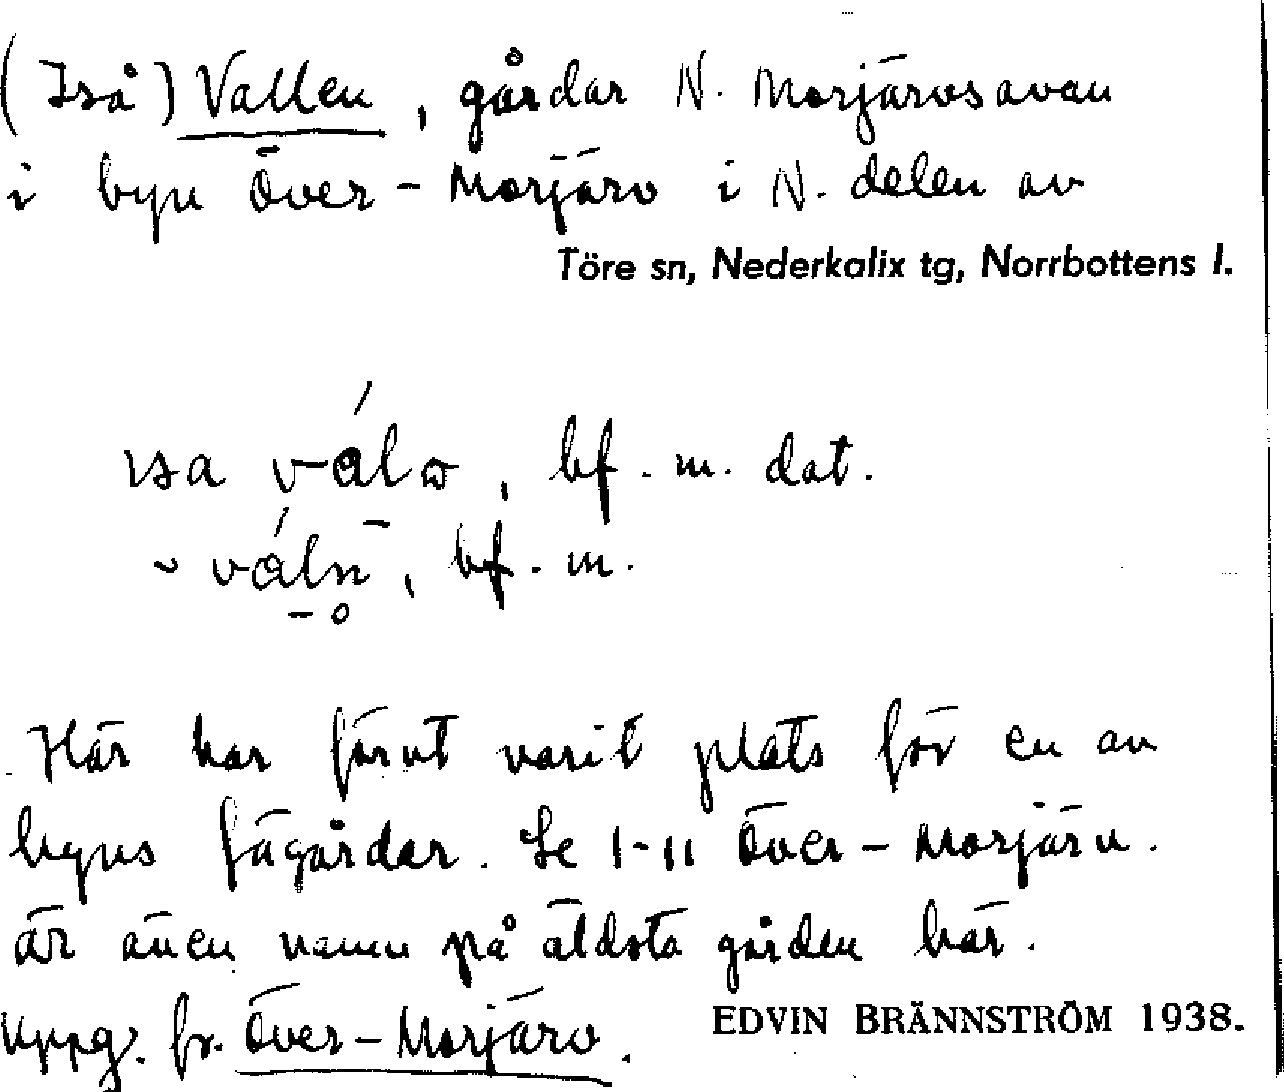 (Iså) Vallen, gårdar N. Morjärvsavan
i byn Över-Morjärv i N. delen av
Töre sn, Nederkalix tg, Norrbottens l.
ısaválω, bf. m. dat.
~ váln̥, bf. m.
Här har förut varit plats för en av
byns fägårdar. Se I-II Över-Morjärv.
är även namn på äldsta gården här.
Uppg. fr. Över-Morjärv.
EDVIN BRÄNNSTRÖM 1938.